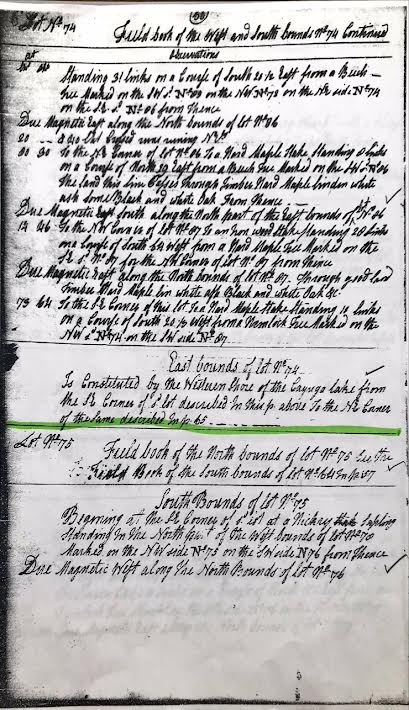 (58)
Lot No 74 Field book of the West and South Bounds No 74 Continued
Observations
Standing 31 links on a Course of South 20 1/2 East from a Beech
Tree Marked on the SW S. No 80 on the NW No 73 on the NE side No 74
on the SE S. No 86 from Thence
Due Magnetic East along the North bounds of Lot No 86
20
80 30 To the NE Corner of lot No 86 To a Hard Maple Stake Standing Links
on a Course of North 29 East from a Beech Tree Marked on the SW S. No 86
The land this line Passes Through Timber Hard Maple linden white
ash some Black and white Oak From Thence
Due Magnetic South along the North part of the East bounds of Lot No 86
14 26 To the NW Corner of lot No 87 To an Iron wood Stake Standing 20 Links
on a Course of South 54 West from a Hard Maple Tree Marked on the
SE S. No 87 for the NW Corner of lot No 87 from Thence
Due Magnetic East along the North bounds of lot No 87. Through good land
timber Hard Maple lin white ash Black and white Oak &c.
73 64 To the SE Corner of this Lot To a Hard Maple Stake Standing 10 links
on a Course of South 20 1/2 West from a Hemlock Tree Marked on the
NW S. No 74 on the SW side No 87
East bounds of lot No 74
Is Constituted by the Western Shore of the Cayuga lake from
the SE Corner of S. lot described In this p. above To the NE Corner
of the Same described In p. 65
Lot No 75 Field book of the North bounds of lot No 75 See the
Field Book of the South bounds of No 64 In p. 57
South Bounds of lot No 75
Begening at the SE Corner of S. lot at a Hickry Sapling
Standing In the North pt. of the West bounds of lot No 70
Marked on the NW side No 75 on the SW side N 76 from Thence
Due Magnetic West along the North Bounds of lot No 76